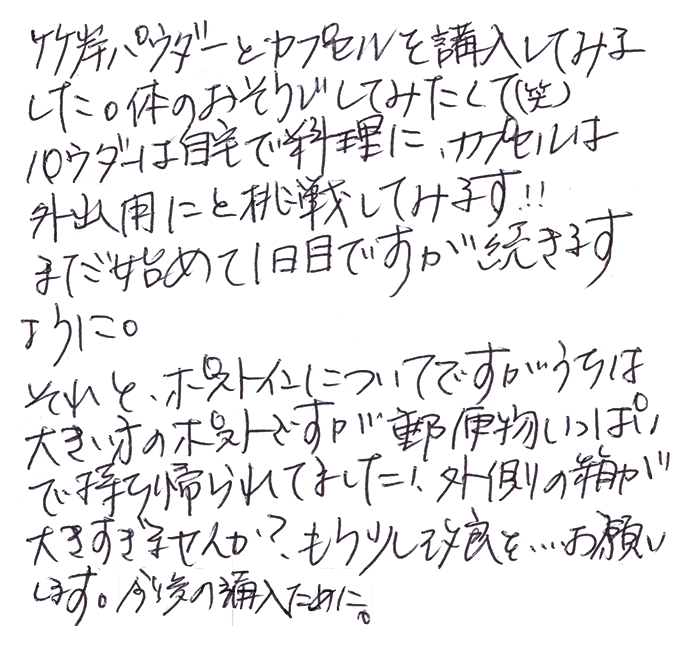 竹炭パウダーとカプセルを購入してみま
した。体のおそうじしてみたくて(笑)
パウダーは自宅で料理に、カプセルは
外出用にと挑戦してみます!!
まだ始めて1日目ですが続きます
ように。
それと、ポストインについてですがうちは
大きい方のポストですが郵便物いっぱい
で持ち帰られてました!、外側の箱が
大きすぎませんか?、もう少し改良を…お願いし
します。今後の購入ために。